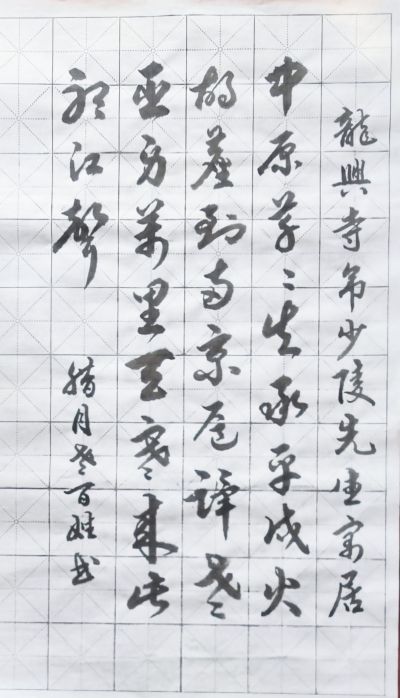 龍興寺吊少陵先生寓居
中原草〻失承平戍火
胡塵到两京扈蹕老
臣身萬里天寒来此
聽江聲
腊月老百姓书